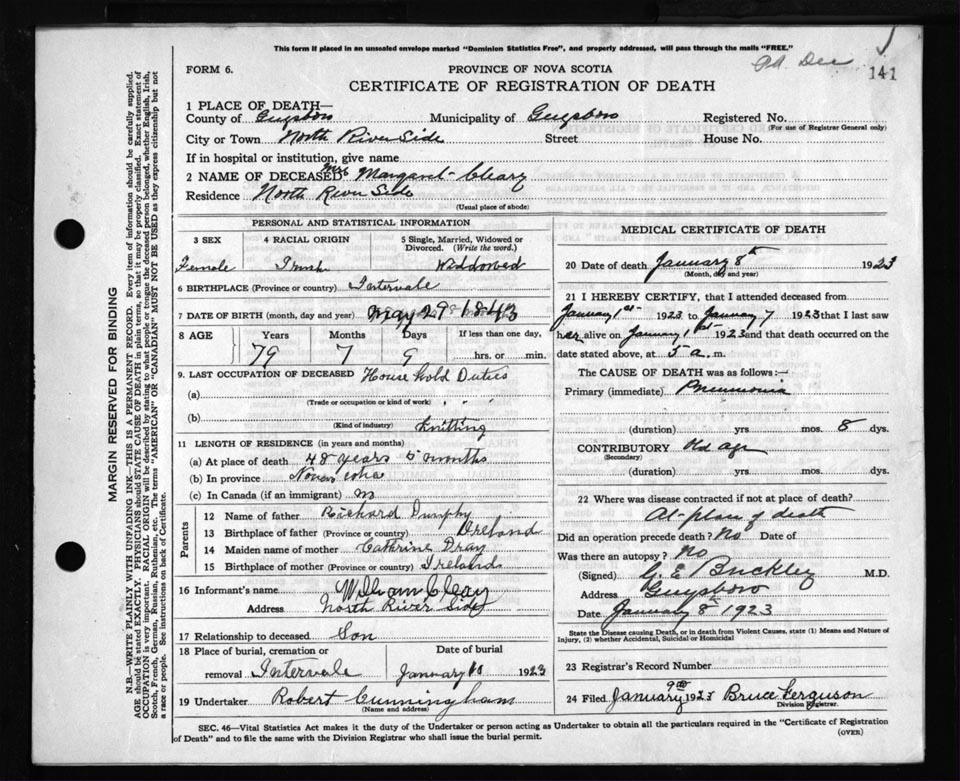 This form if placed in an unsealed envelope marked "Dominion Statistics Free", and properly addressed, will pass through the mails "FREE."
Pd. Dec
141
FORM 6.
PROVINCE OF NOVA SCOTIA
CERTIFICATE OF REGISTRATION OF DEATH
1 PLACE OF DEATH—
County of Guysboro Municipality of Guysboro Registered No.
(For use of Registrar General only)
City or Town North River Side Street House No.
If in hospital or institution, give name
2 NAME OF DECEASED Mrs Margaret Cleary
Residence North River Side
(Usual place of abode)
PERSONAL AND STATISTICAL INFORMATION
3 SEX 4 RACIAL ORIGIN 5 Single, Married, Widowed or Divorced. (Write the word.)
Female Irish Widdowed
6 BIRTHPLACE (Province or country) Intervale
7 DATE OF BIRTH (month, day and year) May 29 1843
8 AGE Years Months Days If less than one day,
79 7 9 hrs. or min.
9. LAST OCCUPATION OF DECEASED House Hold Duties
(a)
(Trade or occupation or kind of work)
(b) Knitting
(Kind of industry)
11 LENGTH OF RESIDENCE (in years and months)
(a) At place of death 48 years 5 months
(b) In province Nova Scotia
(c) In Canada (if an immigrant)
Parents
12 Name of father Richard Dunphy
13 Birthplace of father (Province or country) Ireland
14 Maiden name of mother Cathrine Dray
15 Birthplace of mother (Province or country) Ireland
16 Informant's name William Cleary
Address North River Side
17 Relationship to deceased Son
18 Place of burial, cremation or removal Intervale
Date of burial January 10 1923
19 Undertaker Robert Cunningham
(Name and address)
MEDICAL CERTIFICATE OF DEATH
20 Date of death January 8th 1923
(Month, day and year)
21 I HEREBY CERTIFY, that I attended deceased from
January 1st 1923 to January 7 1923 that I last saw
her alive on January 1st 1923 and that death occurred on the
date stated above, at 5 a. m.
The CAUSE OF DEATH was as follows:—
Primary (immediate) Pneumonia
(duration) yrs. mos. 8 dys.
CONTRIBUTORY Old age
(Secondary)
(duration) yrs. mos. dys.
22 Where was disease contracted if not at place of death?
At place of death
Did an operation precede death? No Date of
Was there an autopsy? No
(Signed) G. E. Buckley M.D.
Address Guysboro
Date January 8th 1923
State the Disease causing Death, or in death from Violent Causes, state (1) Means and Nature of
Injury, (2) whether Accidental, Suicidal or Homicidal
23 Registrar's Record Number
24 Filed January 9th 1923 Bruce Ferguson
Division Registrar.
SEC. 46—Vital Statistics Act makes it the duty of the Undertaker or person acting as Undertaker to obtain all the particulars required in the "Certificate of Registration
of Death" and to file the same with the Division Registrar who shall issue the burial permit.
(OVER)
MARGIN RESERVED FOR BINDING
N.B.—WRITE PLAINLY WITH UNFADING INK—THIS IS A PERMANENT RECORD. Every item of information should be carefully supplied.
AGE should be stated EXACTLY. PHYSICIANS should STATE CAUSE OF DEATH in plain terms, so that it may be properly classified. Exact statement of
OCCUPATION is very important. RACIAL ORIGIN will be described by stating to what people or tongue the deceased person belonged, whether English, Irish,
Scotch, French, German, Russian, Ruthenian, etc. The terms "AMERICAN" OR "CANADIAN" MUST NOT BE USED as they express citizenship but not
a race or people. See instructions on back of Certificate.